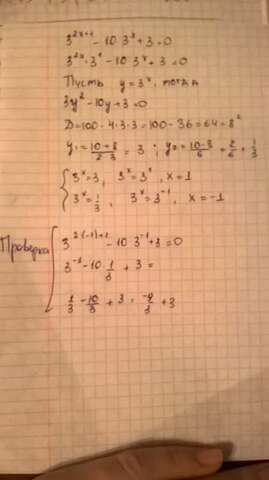 3^{2x+1} - 10·3^x + 3 = 0
3^{2x}·3^1 - 10·3^x + 3 = 0
Пусть y = 3^x, тогда
3y^2 - 10y + 3 = 0
D = 100 - 4·3·3 = 100 - 36 = 64 = 8^2
y_1 = \frac{10+8}{2·3} = 3 ; y_2 = \frac{10-8}{6} = \frac{2}{6} = \frac{1}{3}
3^x = 3, 3^x = 3^1, x = 1
3^x = \frac{1}{3}, 3^x = 3^{-1}, x = -1
Проверка
3^{2·(-1)+1} - 10·3^{-1} + 3 = 0
3^{-1} - 10·\frac{1}{3} + 3 =
\frac{1}{3} - \frac{10}{3} + 3 = \frac{-9}{3} + 3